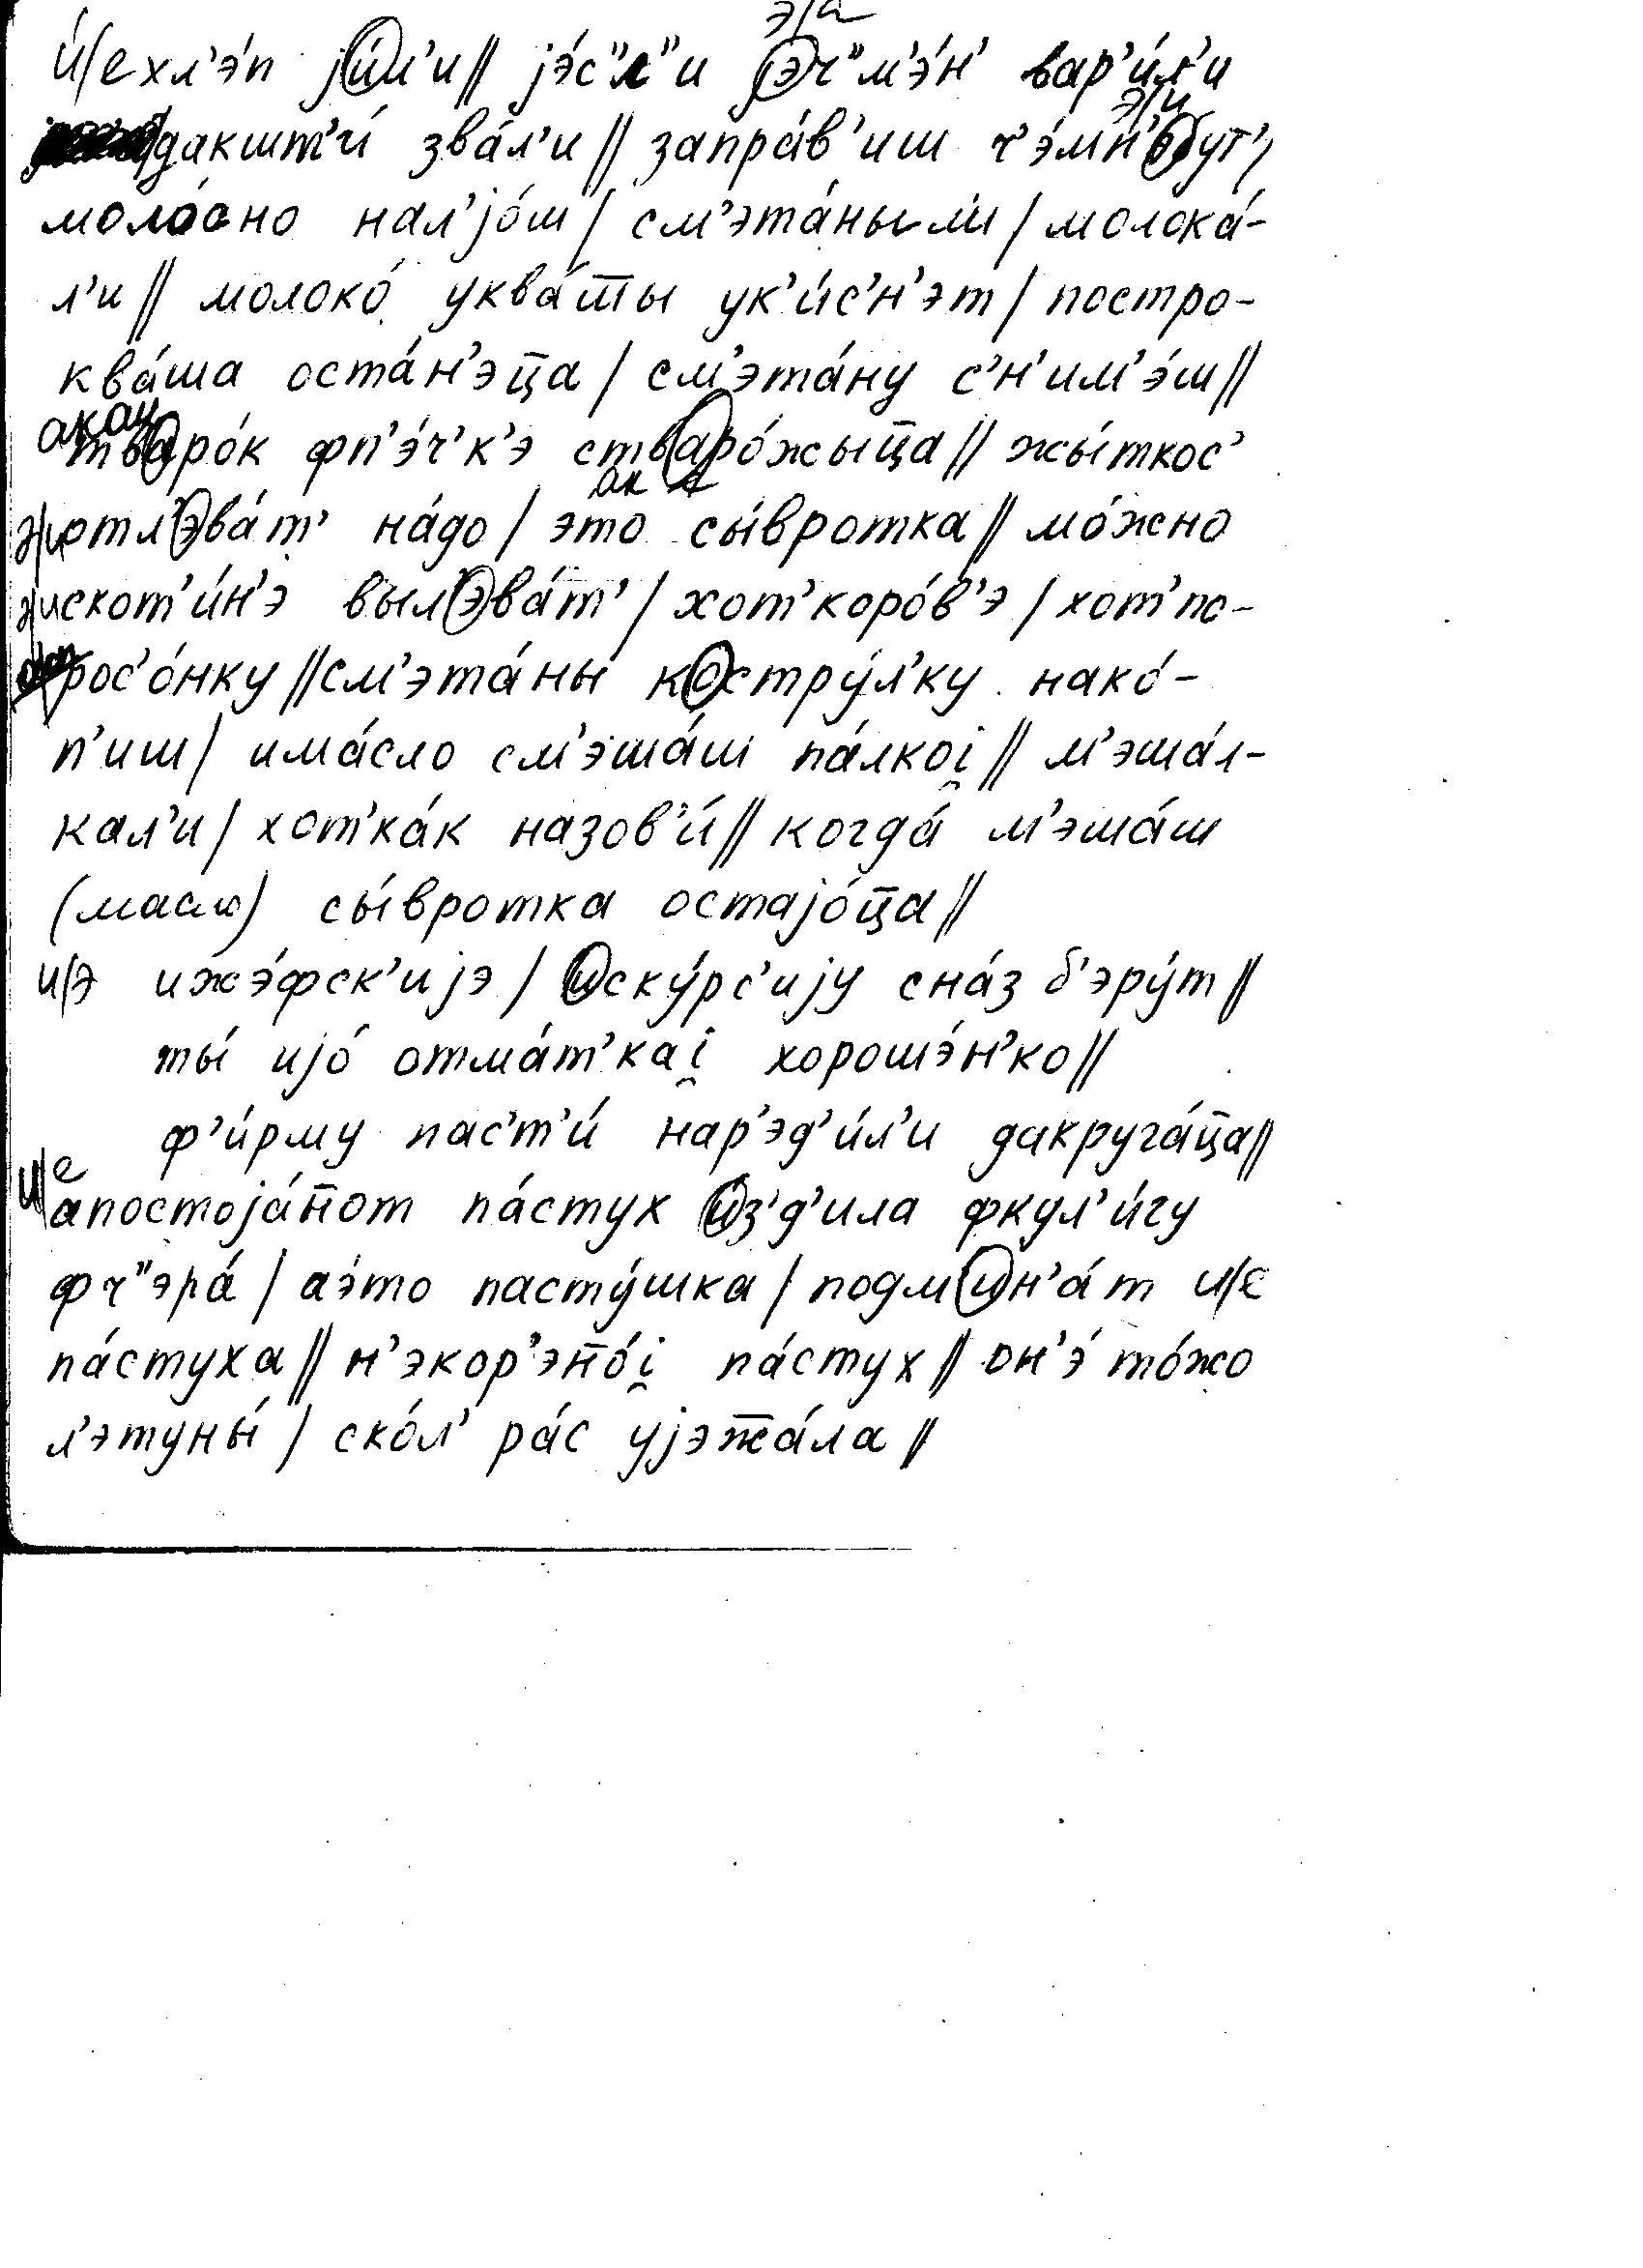 э/а
и́/е хл’э́п jи́л’и // jэ́с"л"и jэч"м’э́н’ вар’и́л’и
дакшт’и́ зва́л’и // запра́в’иш ч’э́мн’эбут’/ э/и
моло́сно нал’jо́ш / см’эта́ныл’и / молока́-
л’и // молоко́ уква́т̄ы ук’и́с’н’эт / постро-
ква́ша оста́н’эц̄а / см’эта́ну с’н’им’э́ш //
акан тваро́к фп’э́ч’к’э стваро́жыц̄а // жы́ткос’
ак
э/и отл’эва́т’ на́до / это сы́вротка // мо́жно
э/и скот’и́н’э выл’эва́т’ / хот’коро́в’э / хот’по-
рос’о́нку // см’эта́ны костру́л’ку нако́-
п’иш / има́сло см’эша́ш па́лкоi̯ // м’эша́л-
кал’и / хот’ка́к назов’и́ // когда́ м’эша́ш
(масло) сы́вротка остаjо́ц̄а //
и/э ижэ́фск’иjэ / иску́рс’иjу сна́з б’эру́т //
ты́ иjо́ отма́т’каi̯ хорошэ́н’ко //
ф’и́рму пас’т’и́ нар’эд’и́л’и дакруга́ц̄а //
и/е апостоjа́н̄от па́стух и́з’д’ила фкул’и́гу
фч"эра́ / аэ́то пасту́шка / подмин’а́т и/е
па́стуха // н’экор’эн̄о́i̯ па́стух // он’э́ то́жо
л’этуны́ / ско́л’ ра́с уjэж̄а́ла //